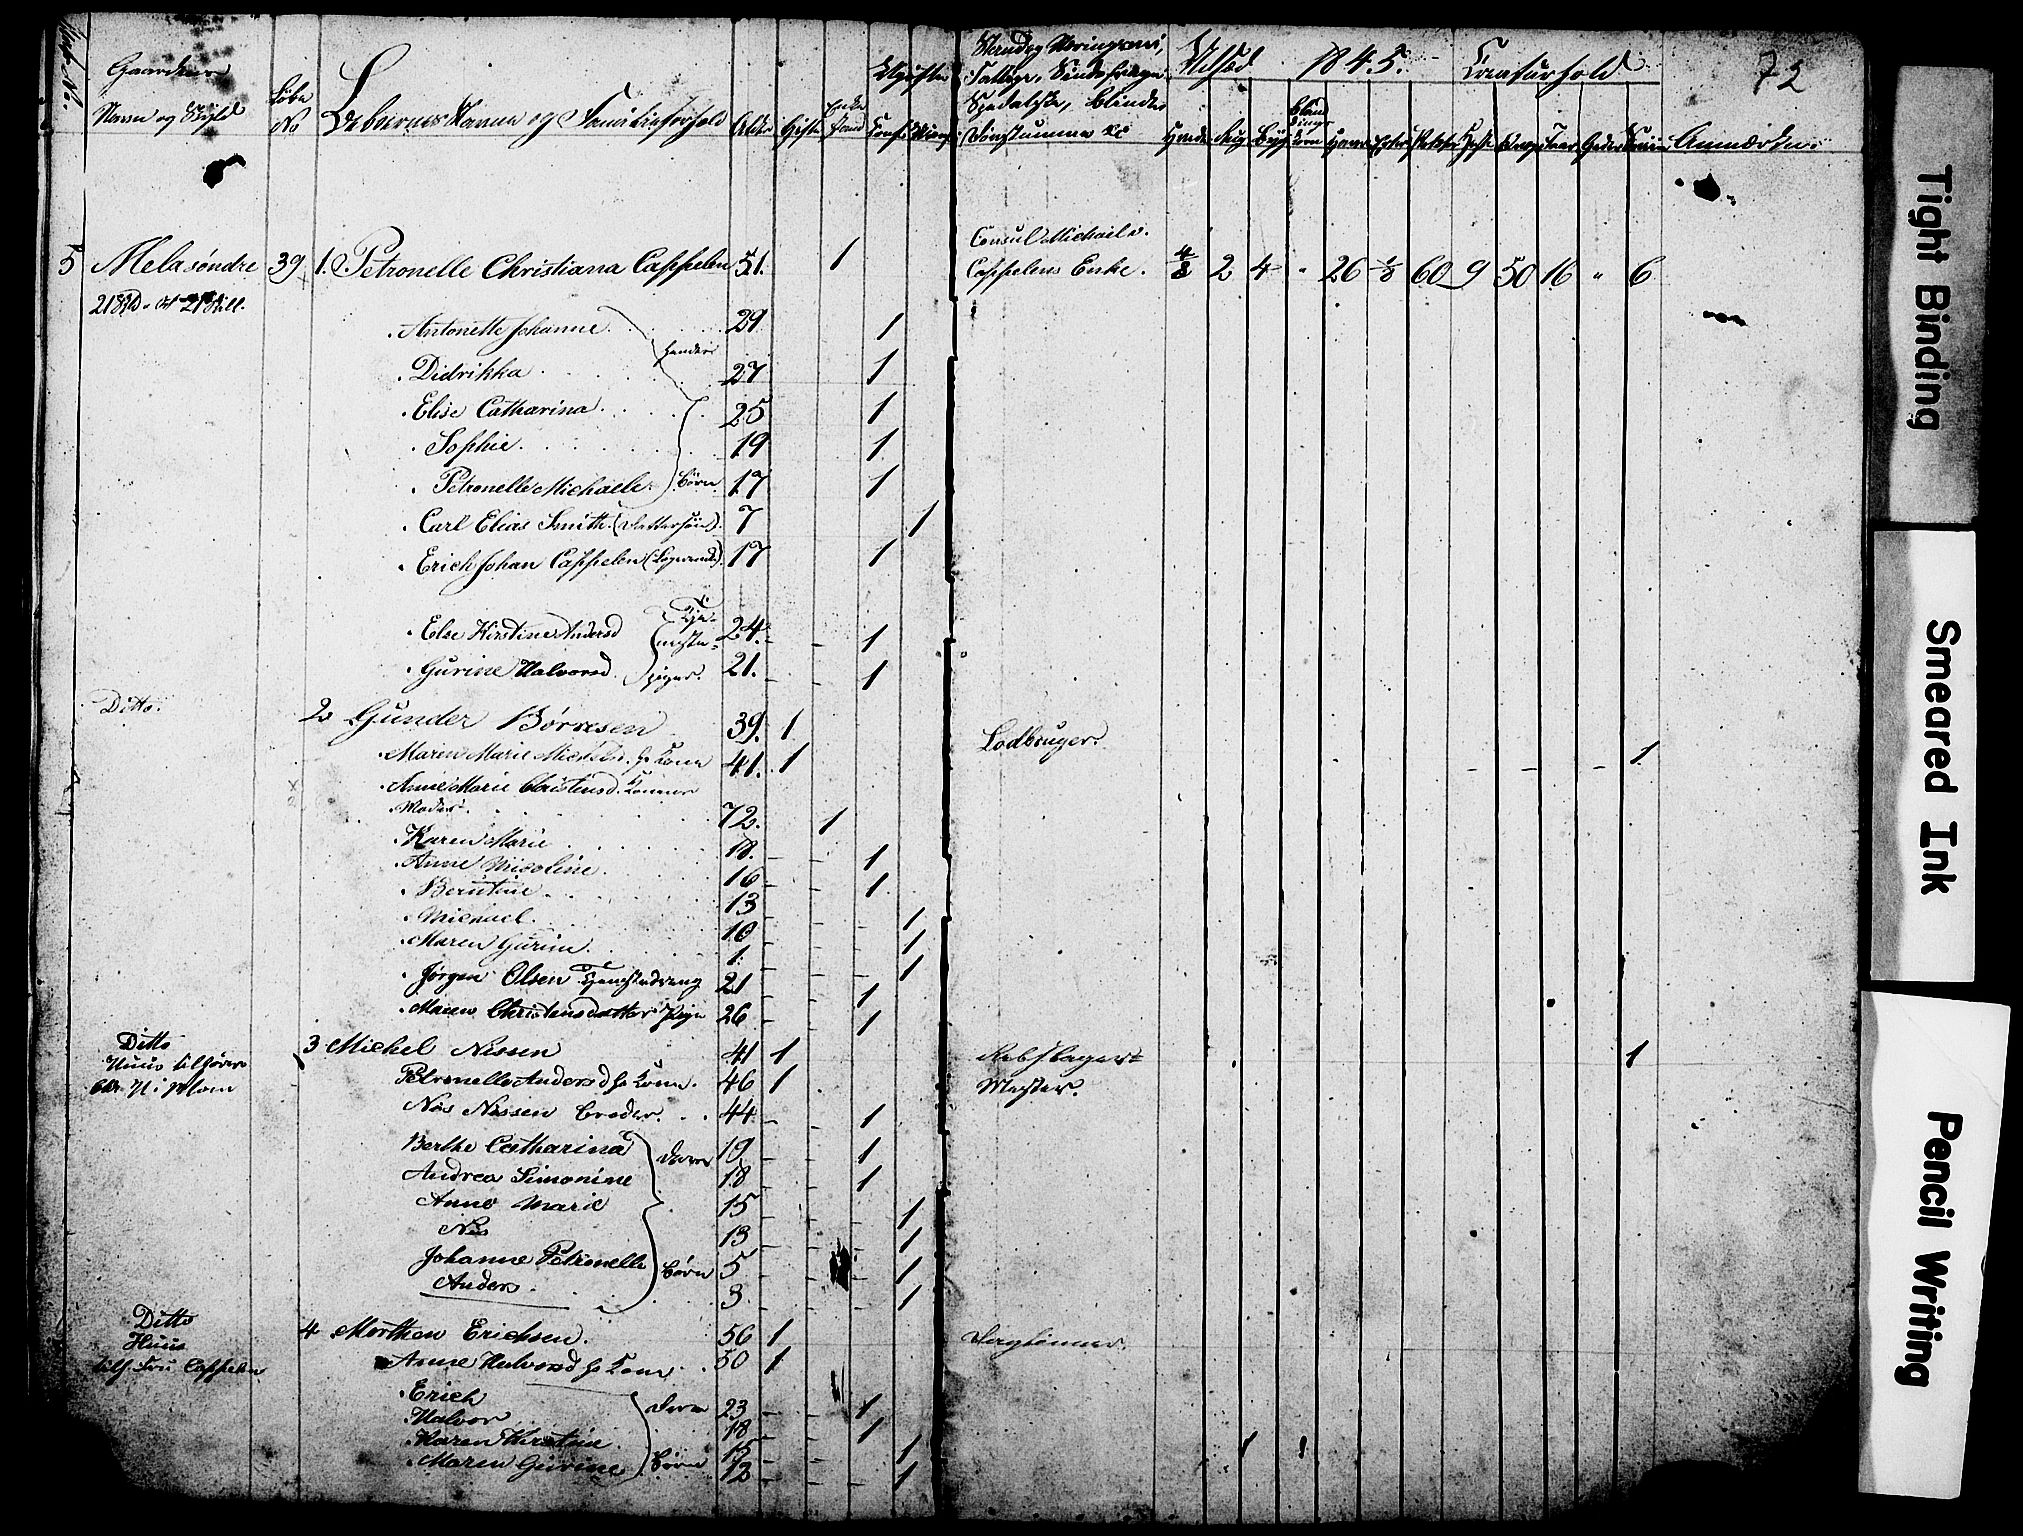 Gaardenes
Navn og Skyld
Løbe
No
Beboernes Navne og Familieforhold
Alder
Gifte
Enke
stand
Ugifte
Conf.
Stand og Næringsvei,
Fattige, Sindssvage,
Spedalske, Blinde,
Døvstumme &c
Udsæd 1845.
Creaturhold
72
Hvede
Rug
Byg
Bland
Havre
Erter
Poteter
Heste
Faar
Geder
Sviin
Anmærkn:
5 Mela søndre 39 1. Petronelle Christiana Cappelen 51. 1 Consul Michael v.
Cappelens Enke. 4/8 2 4 " 26 1/8 60 9 50 16 " 6
Antonette Johanne 29 1
hendes
Didrikka 27 1
Elise Catharina 25 1
Sophie 19 1
Petronelle Michaele Børn 17 1
Carl Elias Smith (Dattersøn) 7 1
Erich Johan Cappelen (Logerende) 17 1
Else Kirstine Andersd 24 1
Tjenestepiger
Gurine Halvorsd. 21. 1
Ditto.
2 Gunder Børresen 39. 1 Lodbruger. 1
Maren Marie Michelsd. hs Kone 41. 1
Anne Marie Christensd. Konens
Moder 72. 1
Karen Marie 18. 1
Anne Nicoline 16 1
Berntine 13 1
Michael 10 1
Maren Gurine 1. 1
Jørgen Olsen Tjenestedreng 21 1
Maren Christensdatter Pige 26 1
Ditto
Huus tilhører
3 Michel Nissen 41 1 Rebslager= 1
Petronelle Andersd hs Kone. 46 1 Mester.
Niis Nissen Broder 44 1
Berthe Catharina 19 1
Deres
Andrea Simonine 18 1
Anne Marie 15 1
Niis 13 1
Johanne Petronelle Børn 5 1
Anders 3 1
Ditto
Huus
tilh. Fru Cappelen
4 Morthen Erichsen. 56 1 Daglønner.
Anne Halvorsd hs Kone 50 1
Erich Deres 23 1
Halvor 18 1
Karen Kirstine 15 1
Maren Gurine Børn 12 1
Tight Binding
Smeared Ink
Pencil Writing